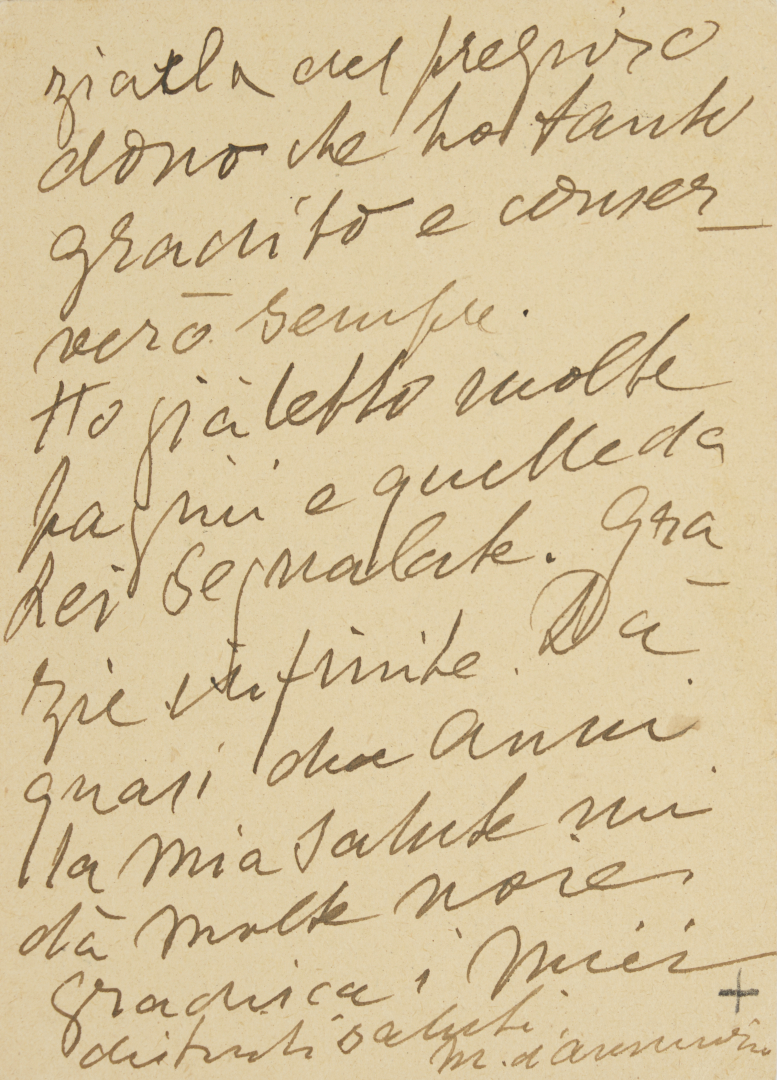 ziarla del prezioso
dono che ho tanto
gradito e conser_
verò sempre.
Ho già letto molte
pagini e quelle da
Lei segnalate. Gra
zie infinite. Da
quasi due anni
la mia salute mi
dà molte noie
gradisca i miei
distinti saluti
M. d'Annunzio